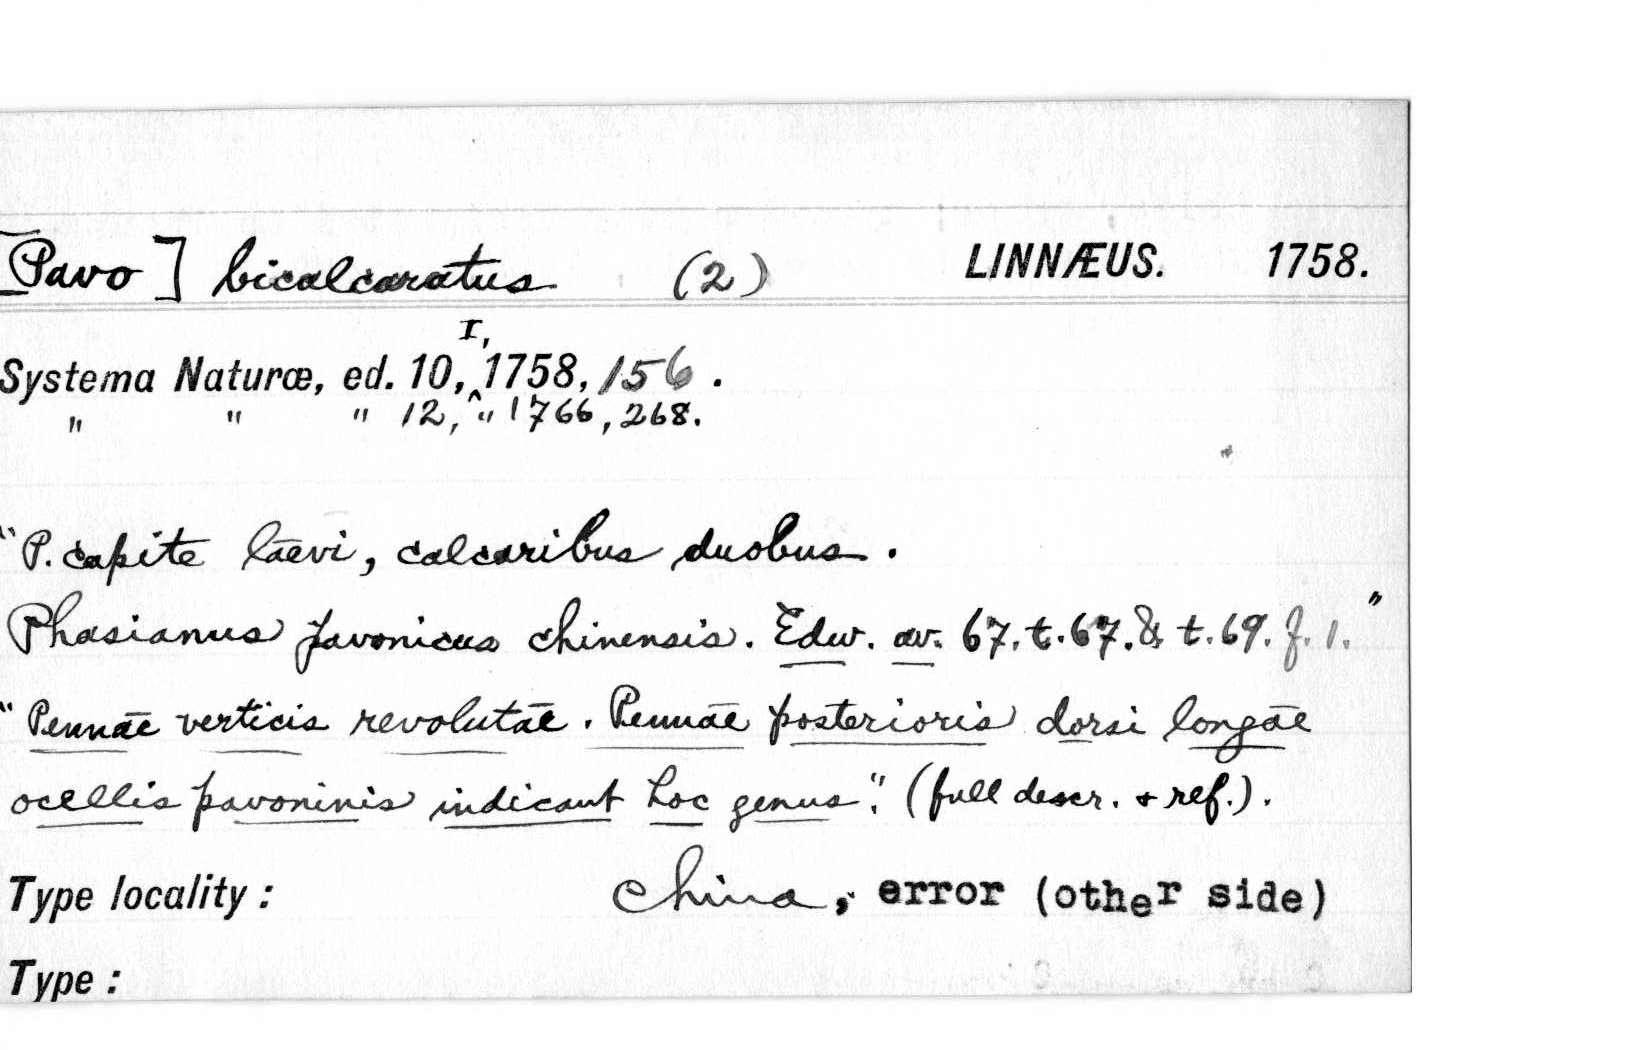 [Pavo] bicalcaratus (2) LINNÆUS. 1758.
Systema Naturæ, ed. 10, I, 1758, 156.
" " " 12, " 1766, 268.
"P. capite laevi, calcaribus duobus.
Phasianus pavonicus chinensis. Edw. av. 67. t. 67. & t. 69. f. 1."
"Pennae verticis revolutae. Pennae posterioris dorsi longae
ocellis pavoninis indicant hoc genus". (full descr. & ref.).
Type locality: China, error (other side)
Type: